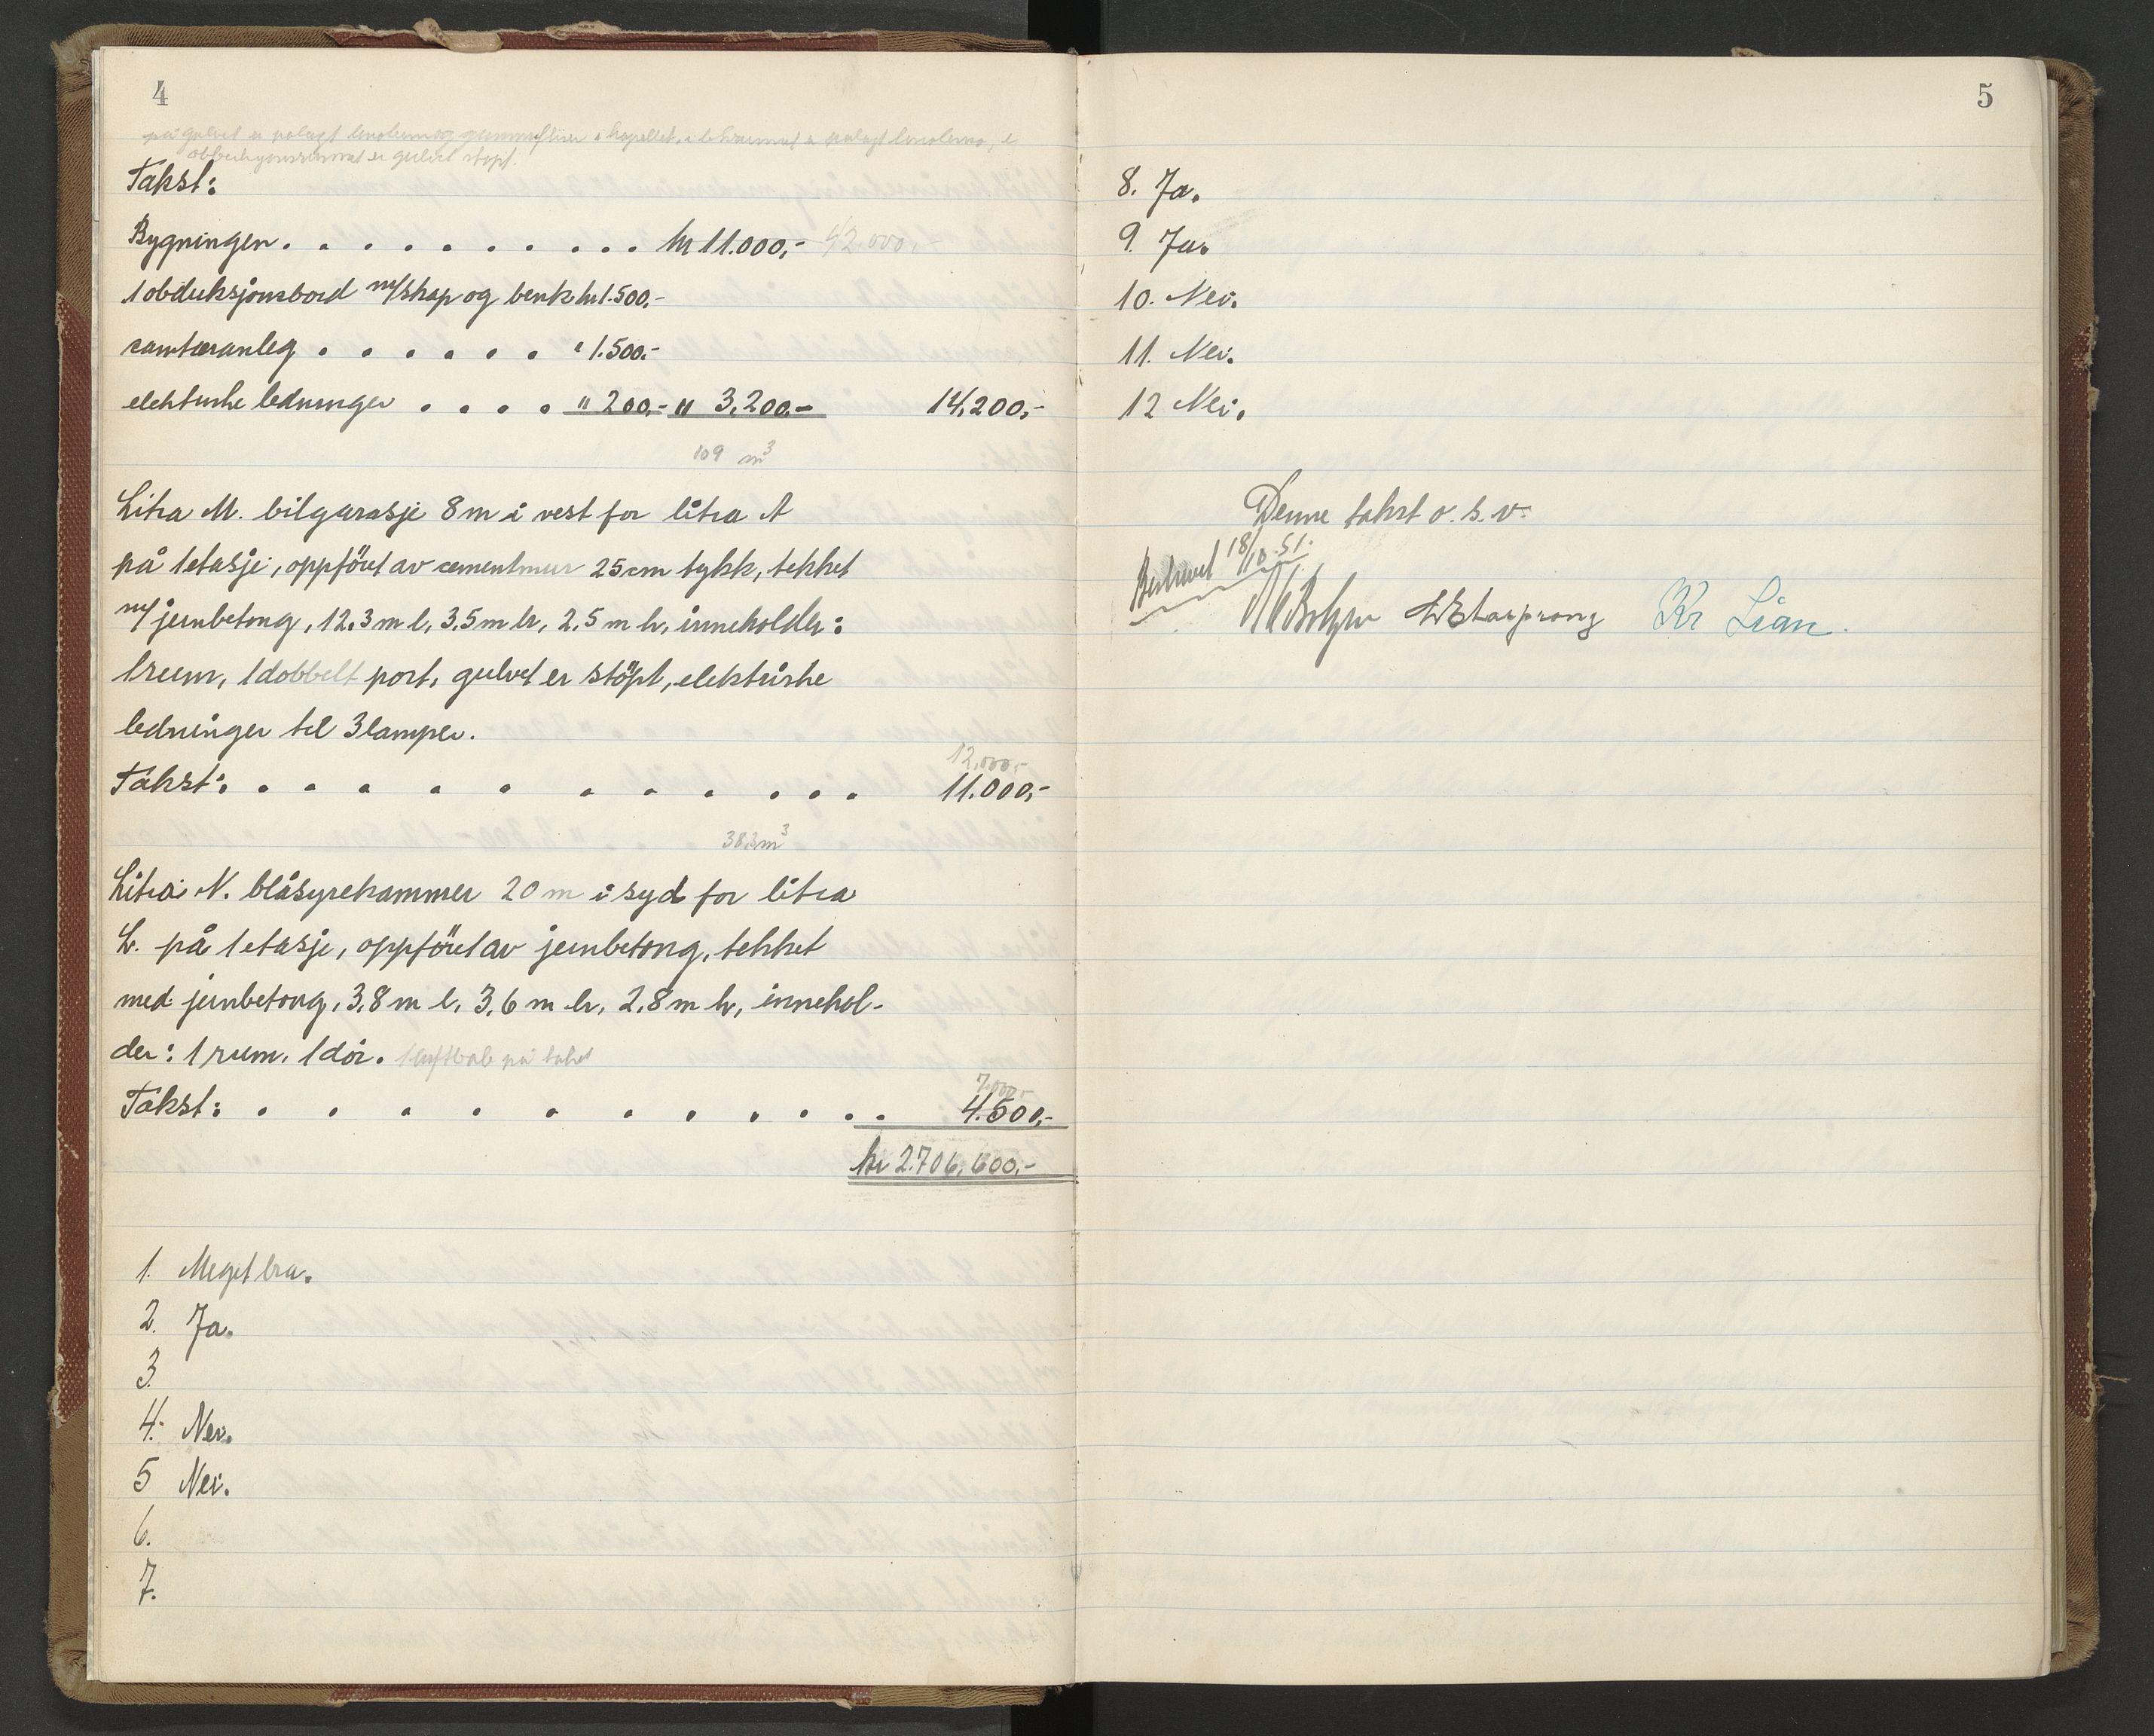 4
på gulvet er pålagt linoleum og gummifliser i kapellet, i er pålagt linoleum, i
obduksjonsrummet er gulvet støpt.
Takst:
Bygningen . . . . . . . . . . . kr 11.000,- 42.000,-
1 obduksjonsbord m/skap og benk kr 1.500,-
sanitæranleg . . . . . . " 1.500,-
elektriske ledninger . . . . " 200,- " 3.200,- 14.200,-
109 m³
Litra M. bilgarasje 8 m i vest for litra A
på 1 etasje, oppföret av cementmur 25 cm tykk, tekket
m/jernbetong, 12.3 m l, 3.5 m br, 2.5 m h, inneholder:
1 rum, 1 dobbelt port, gulvet er stöpt, elektriske
ledninger til 3 lamper.
12.000,-
Takst: . . . . . . . . . . . . 11.000,-
38.3 m³
Litra N. blåsyrekammer 20 m i syd for litra
L. på 1 etasje, oppföret av jernbetong, tekket
med jernbetong, 3,8 m l, 3,6 m br, 2,8 m h, innehol-
der: 1 rum, 1 dör. 1 på taket
7.000,-
Takst: . . . . . . . . . . . 4.500,-
kr 2.706.600,-
1. Meget bra.
2. Ja.
3.
4. Nei.
5 Nei.
6.
7.
5
8. Ja.
9. Ja.
10. Nei.
11. Nei.
12 Nei.
Denne takst o.s.v.
Beskrevet 18/10.51.
Kr Lian.